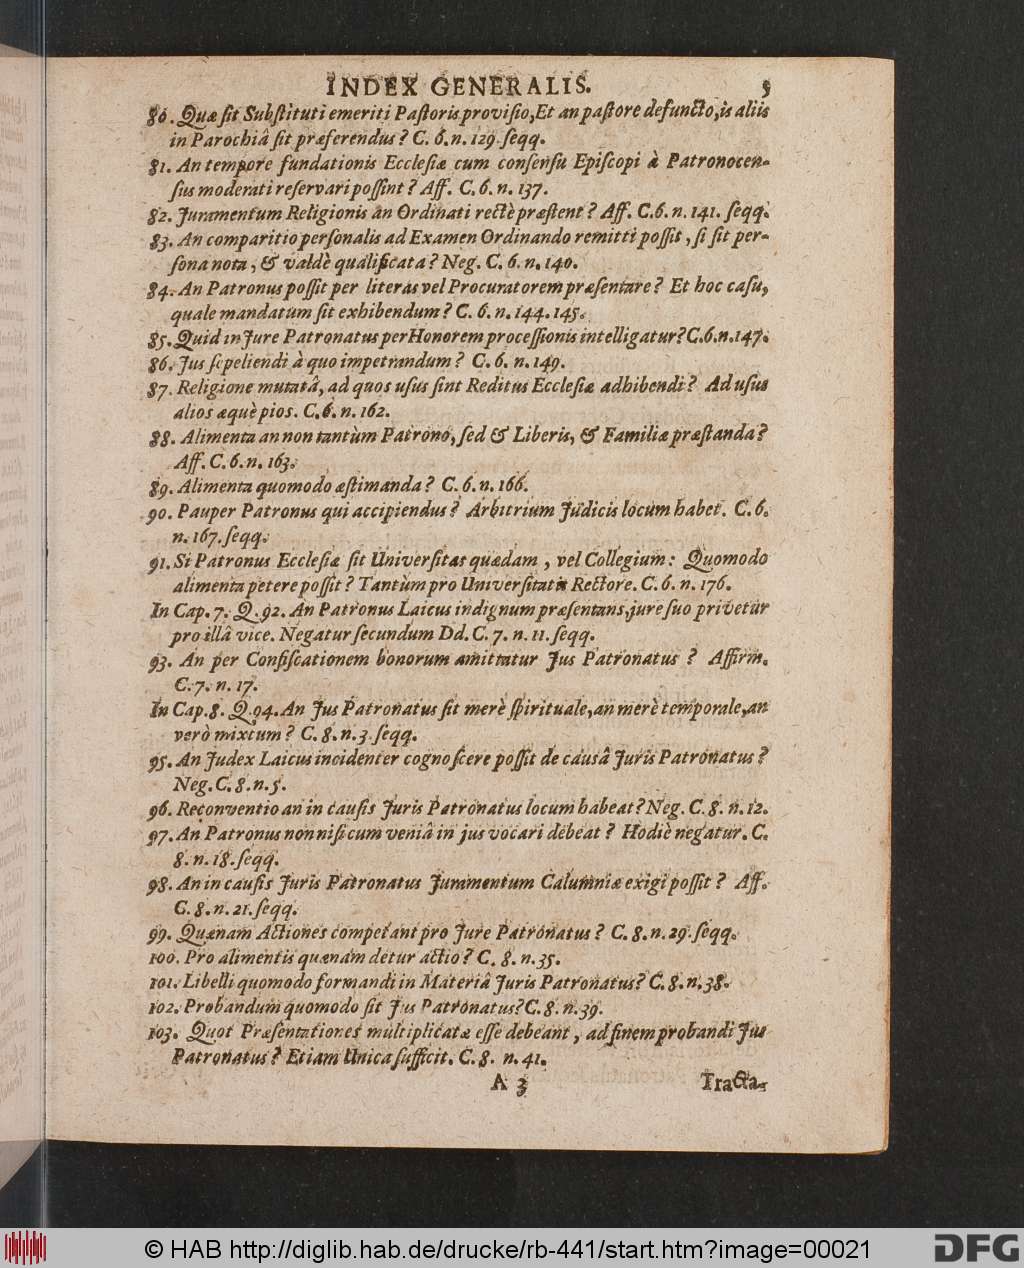 INDEX GENERALIS. 5
80. Quæ sit Substituti emeriti Pastoris provisio, Et an pastore defuncto, is aliis
in Parochiâ sit præferendus? C. 6. n. 129. seqq.
81. An tempore fundationis Ecclesiæ cum consensu Episcopi à Patrono cen-
sus moderati reservari possint? Aff. C. 6. n. 137.
82. Juramentum Religionis an Ordinati rectè præstent? Aff. C. 6. n. 141. seqq.
83. An comparitio personalis ad Examen Ordinando remitti possit, si sit per-
sona nota, & valdè qualificata? Neg. C. 6. n. 140.
84. An Patronus possit per literas vel Procuratorem præsentare? Et hoc casu,
quale mandatum sit exhibendum? C. 6. n. 144. 145.
85. Quid in Jure Patronatus per Honorem processionis intelligatur? C. 6. n. 147.
86. Jus sepeliendi à quo impetrandum? C. 6. n. 149.
87. Religione mutatâ, ad quos usus sint Reditus Ecclesiæ adhibendi? Ad usus
alios æquè pios. C. 6. n. 162.
88. Alimenta an non tantùm Patrono, sed & Liberis, & Familiæ præstanda?
Aff. C. 6. n. 163.
89. Alimenta quomodo æstimanda? C. 6. n. 166.
90. Pauper Patronus qui accipiendus? Arbitrium Judicis locum habet. C. 6.
n. 167. seqq.
91. Si Patronus Ecclesiæ sit Universitas quædam, vel Collegium: Quomodo
alimenta petere possit? Tantùm pro Universitatis Rectore. C. 6. n. 176.
In Cap. 7. Q. 92. An Patronus Laicus indignum præsentans, jure suo privetur
pro illâ vice. Negatur secundum Dd. C. 7. n. 11. seqq.
93. An per Confiscationem bonorum amittatur Jus Patronatus? Affirm.
C. 7. n. 17.
In Cap. 8. Q. 94. An Jus Patronatus sit merè spirituale, an merè temporale, an
verò mixtum? C. 8. n. 3. seqq.
95. An Judex Laicus incidenter cognoscere possit de causâ Juris Patronatus?
Neg. C. 8. n. 5.
96. Reconventio an in causis Juris Patronatus locum habeat? Neg. C. 8. n. 12.
97. An Patronus non nisi cum veniâ in jus vocari debeat? Hodiè negatur. C.
8. n. 18. seqq.
98. An in causis Juris Patronatus Juramentum Calumniæ exigi possit? Aff.
C. 8. n. 21. seqq.
99. Quænam Actiones competant pro Jure Patronatus? C. 8. n. 29. seqq.
100. Pro alimentis quænam detur actio? C. 8. n. 35.
101. Libelli quomodo formandi in Materiâ Juris Patronatus? C. 8. n. 38.
102. Probandum quomodo sit Jus Patronatus? C. 8. n. 39.
103. Quot Præsentationes multiplicatæ esse debeant, ad finem probandi Jus
Patronatus? Etiam Unica sufficit. C. 8. n. 41.
A 3 Tracta-
© HAB http://diglib.hab.de/drucke/rb-441/start.htm?image=00021
DFG